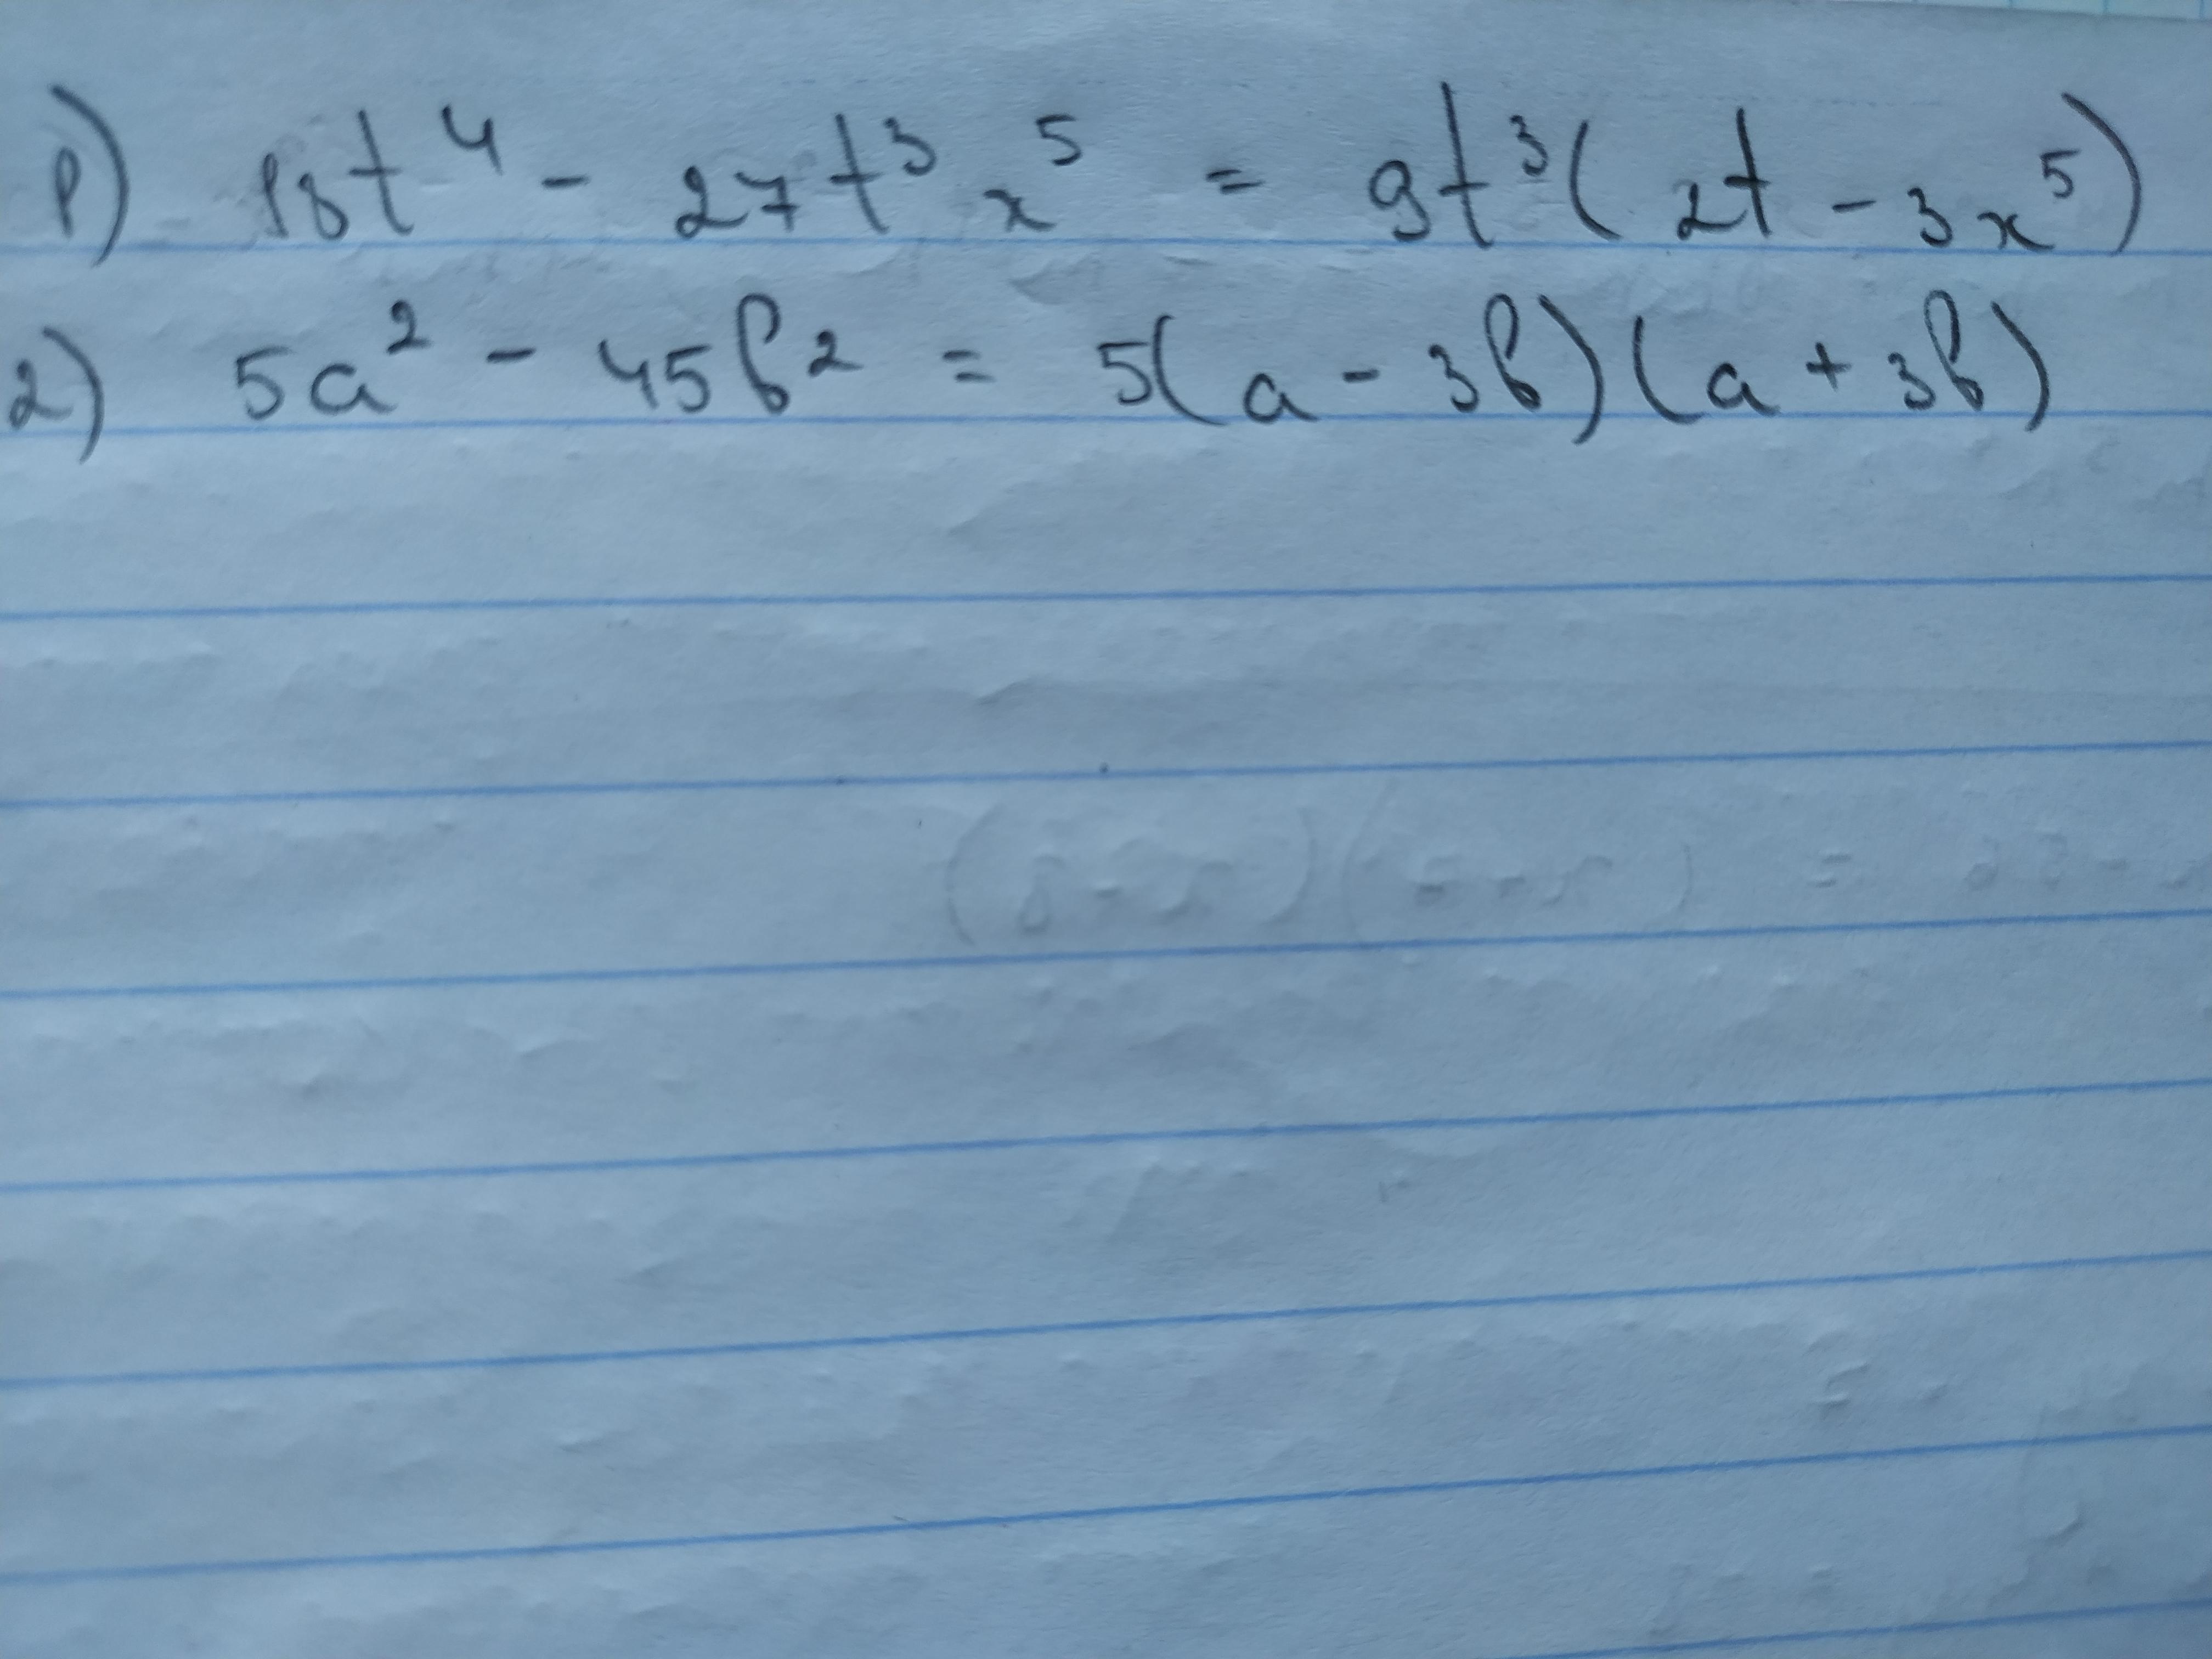 1) 18t⁴ - 27t³x⁵ = 9t³(2t - 3x⁵)
2) 5a² - 45b² = 5(a - 3b)(a + 3b)